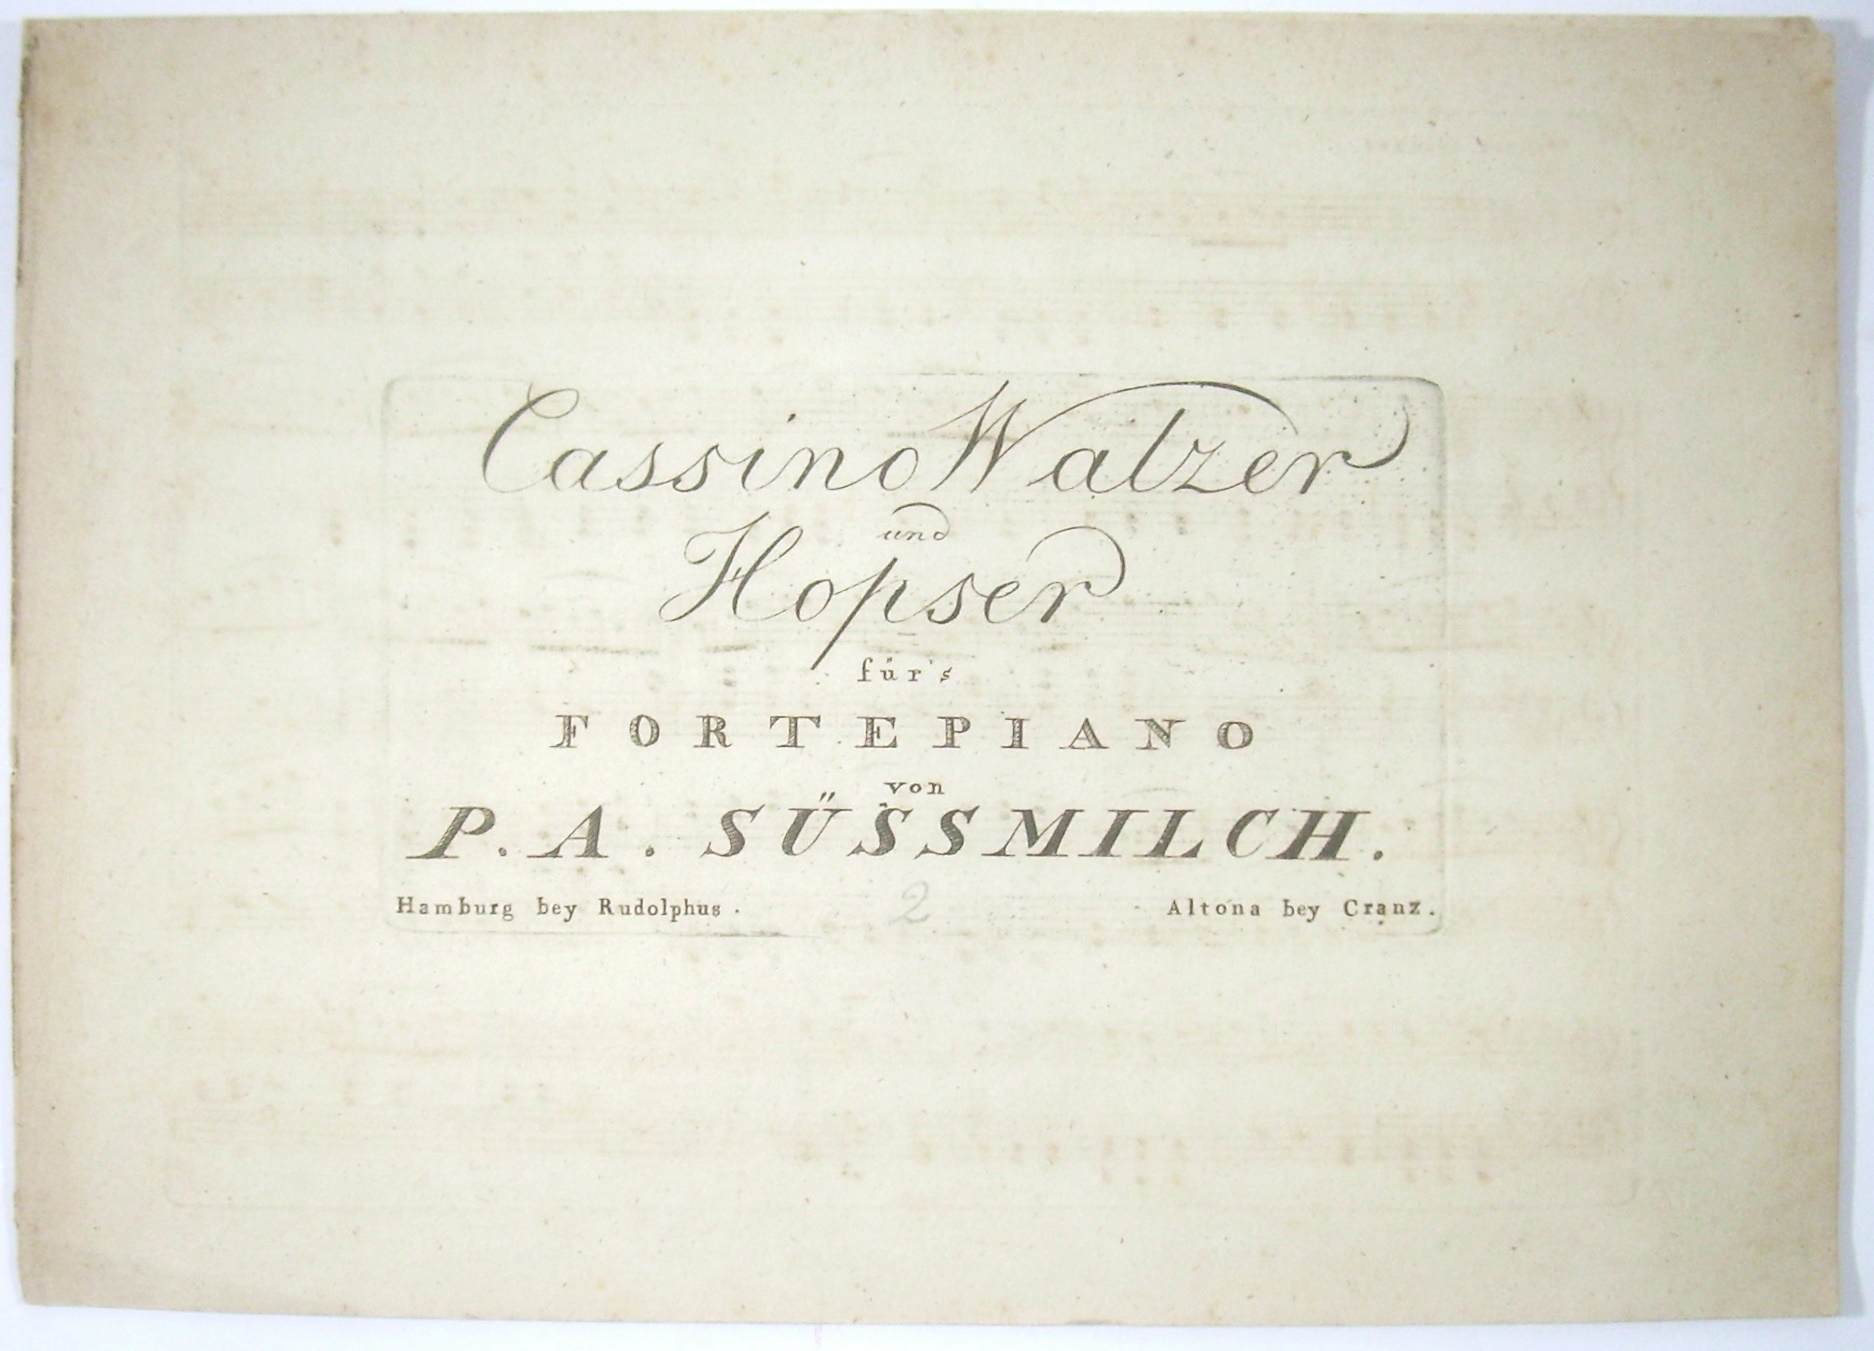 Cassino Walzer
und
Hopser
für's
FORTEPIANO
von
P. A. SÜSSMILCH.
Hamburg bey Rudolphus. 2 Altona bey Cranz.